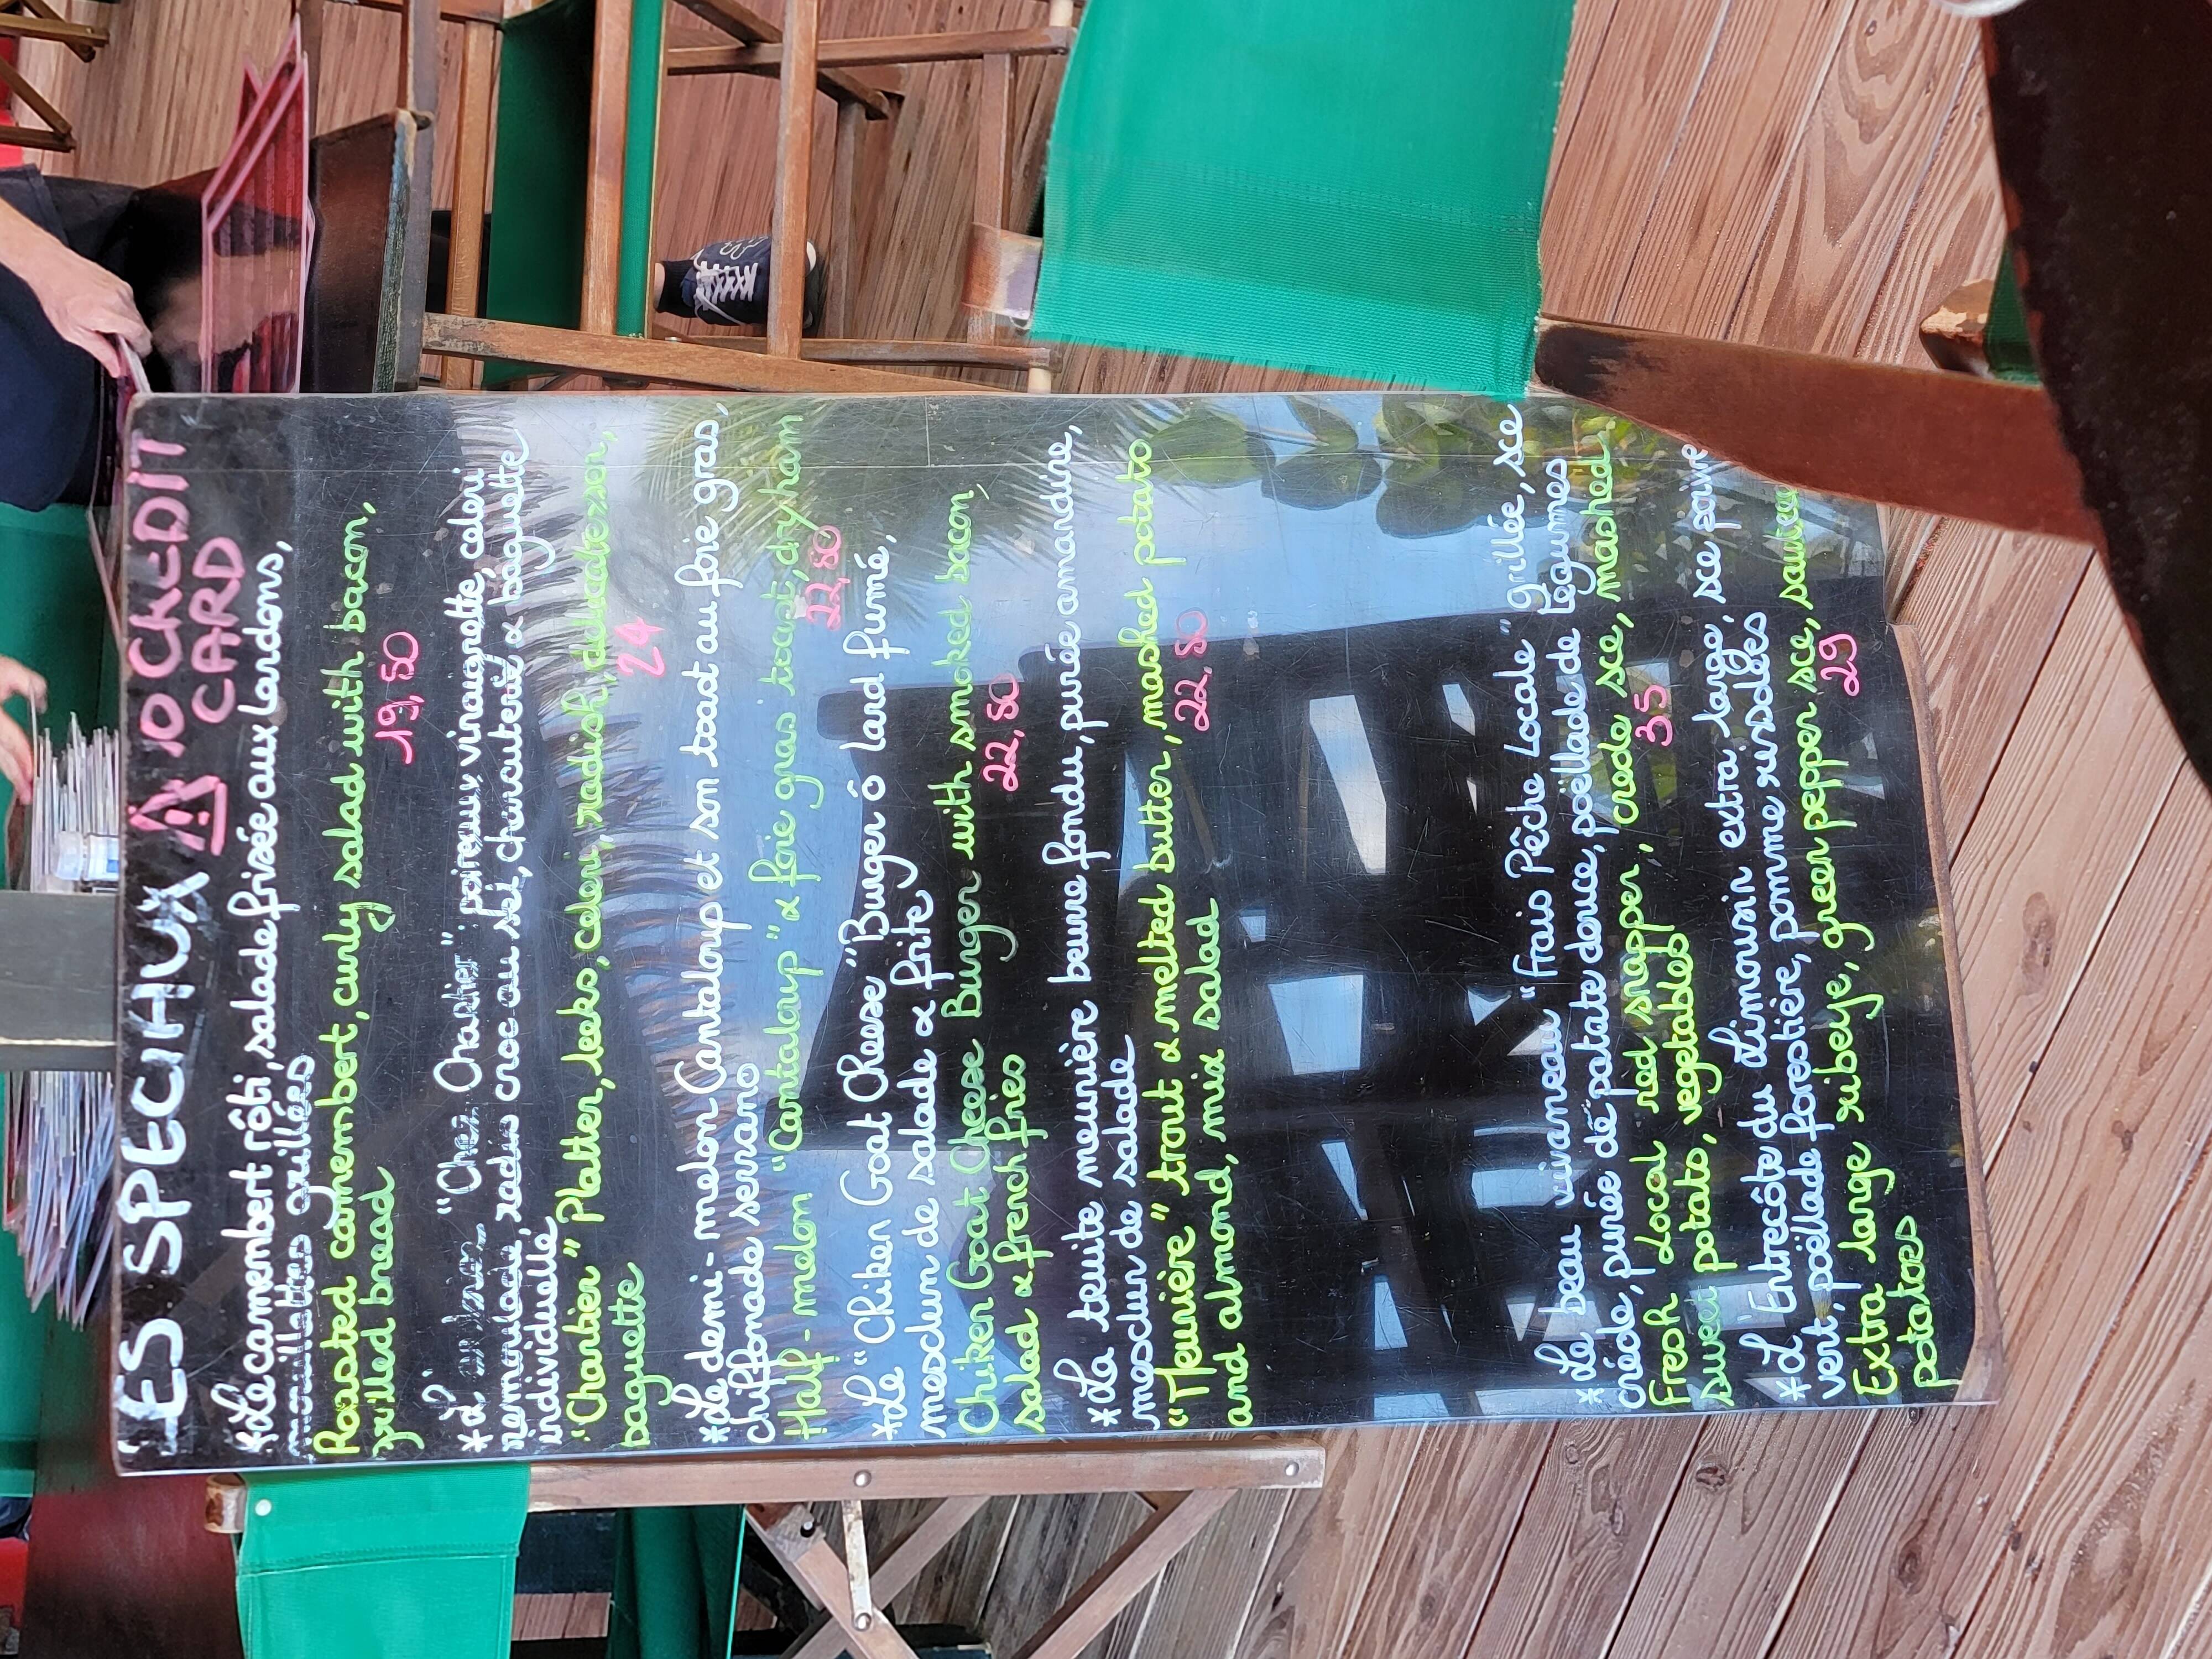 LES SPECIAUX ⚠ 10€ CREDIT
CARD
*Le camembert rôti, salade frisée aux lardons,
mouillettes grillées
Roasted camembert, curly salad with bacon,
grilled bread
19,50
*L' "Chez Chartier": poireaux vinaigrette, celeri
remoulade, radis croc au sel, charcuterie & baguette
individuelle
"Chartier" Platter, leeks, celeri, radish, delicatessen,
baguette
24
*Le demi-melon Cantaloup et son toast au foie gras,
chiffonade serrano
Half-melon "Cantaloup" & foie gras toast, dry ham
22,50
*Le "Chiken Goat Cheese" Burger ô lard fumé,
mesclun de salade & frite
Chiken Goat Cheese Burger with smoked bacon
salad & french fries
22,50
*La truite meunière beurre fondu, purée amandine,
mesclun de salade
"Meunière" trout & melted butter, mashed potato
and almond, mix salad
22,50
*Le beau vivaneau "Frais Pêche Locale" grillée, sce
créole, purée de patate douce, poëllade de légumes
Fresh Local red snapper, creole sce, mashed
sweet potato, vegetables
35
*L'Entrecôte du Limousin extra large, sce poivre
vert, poëllade forestière, pomme rissolées
Extra large ribeye, green pepper sce,
potatoes
29